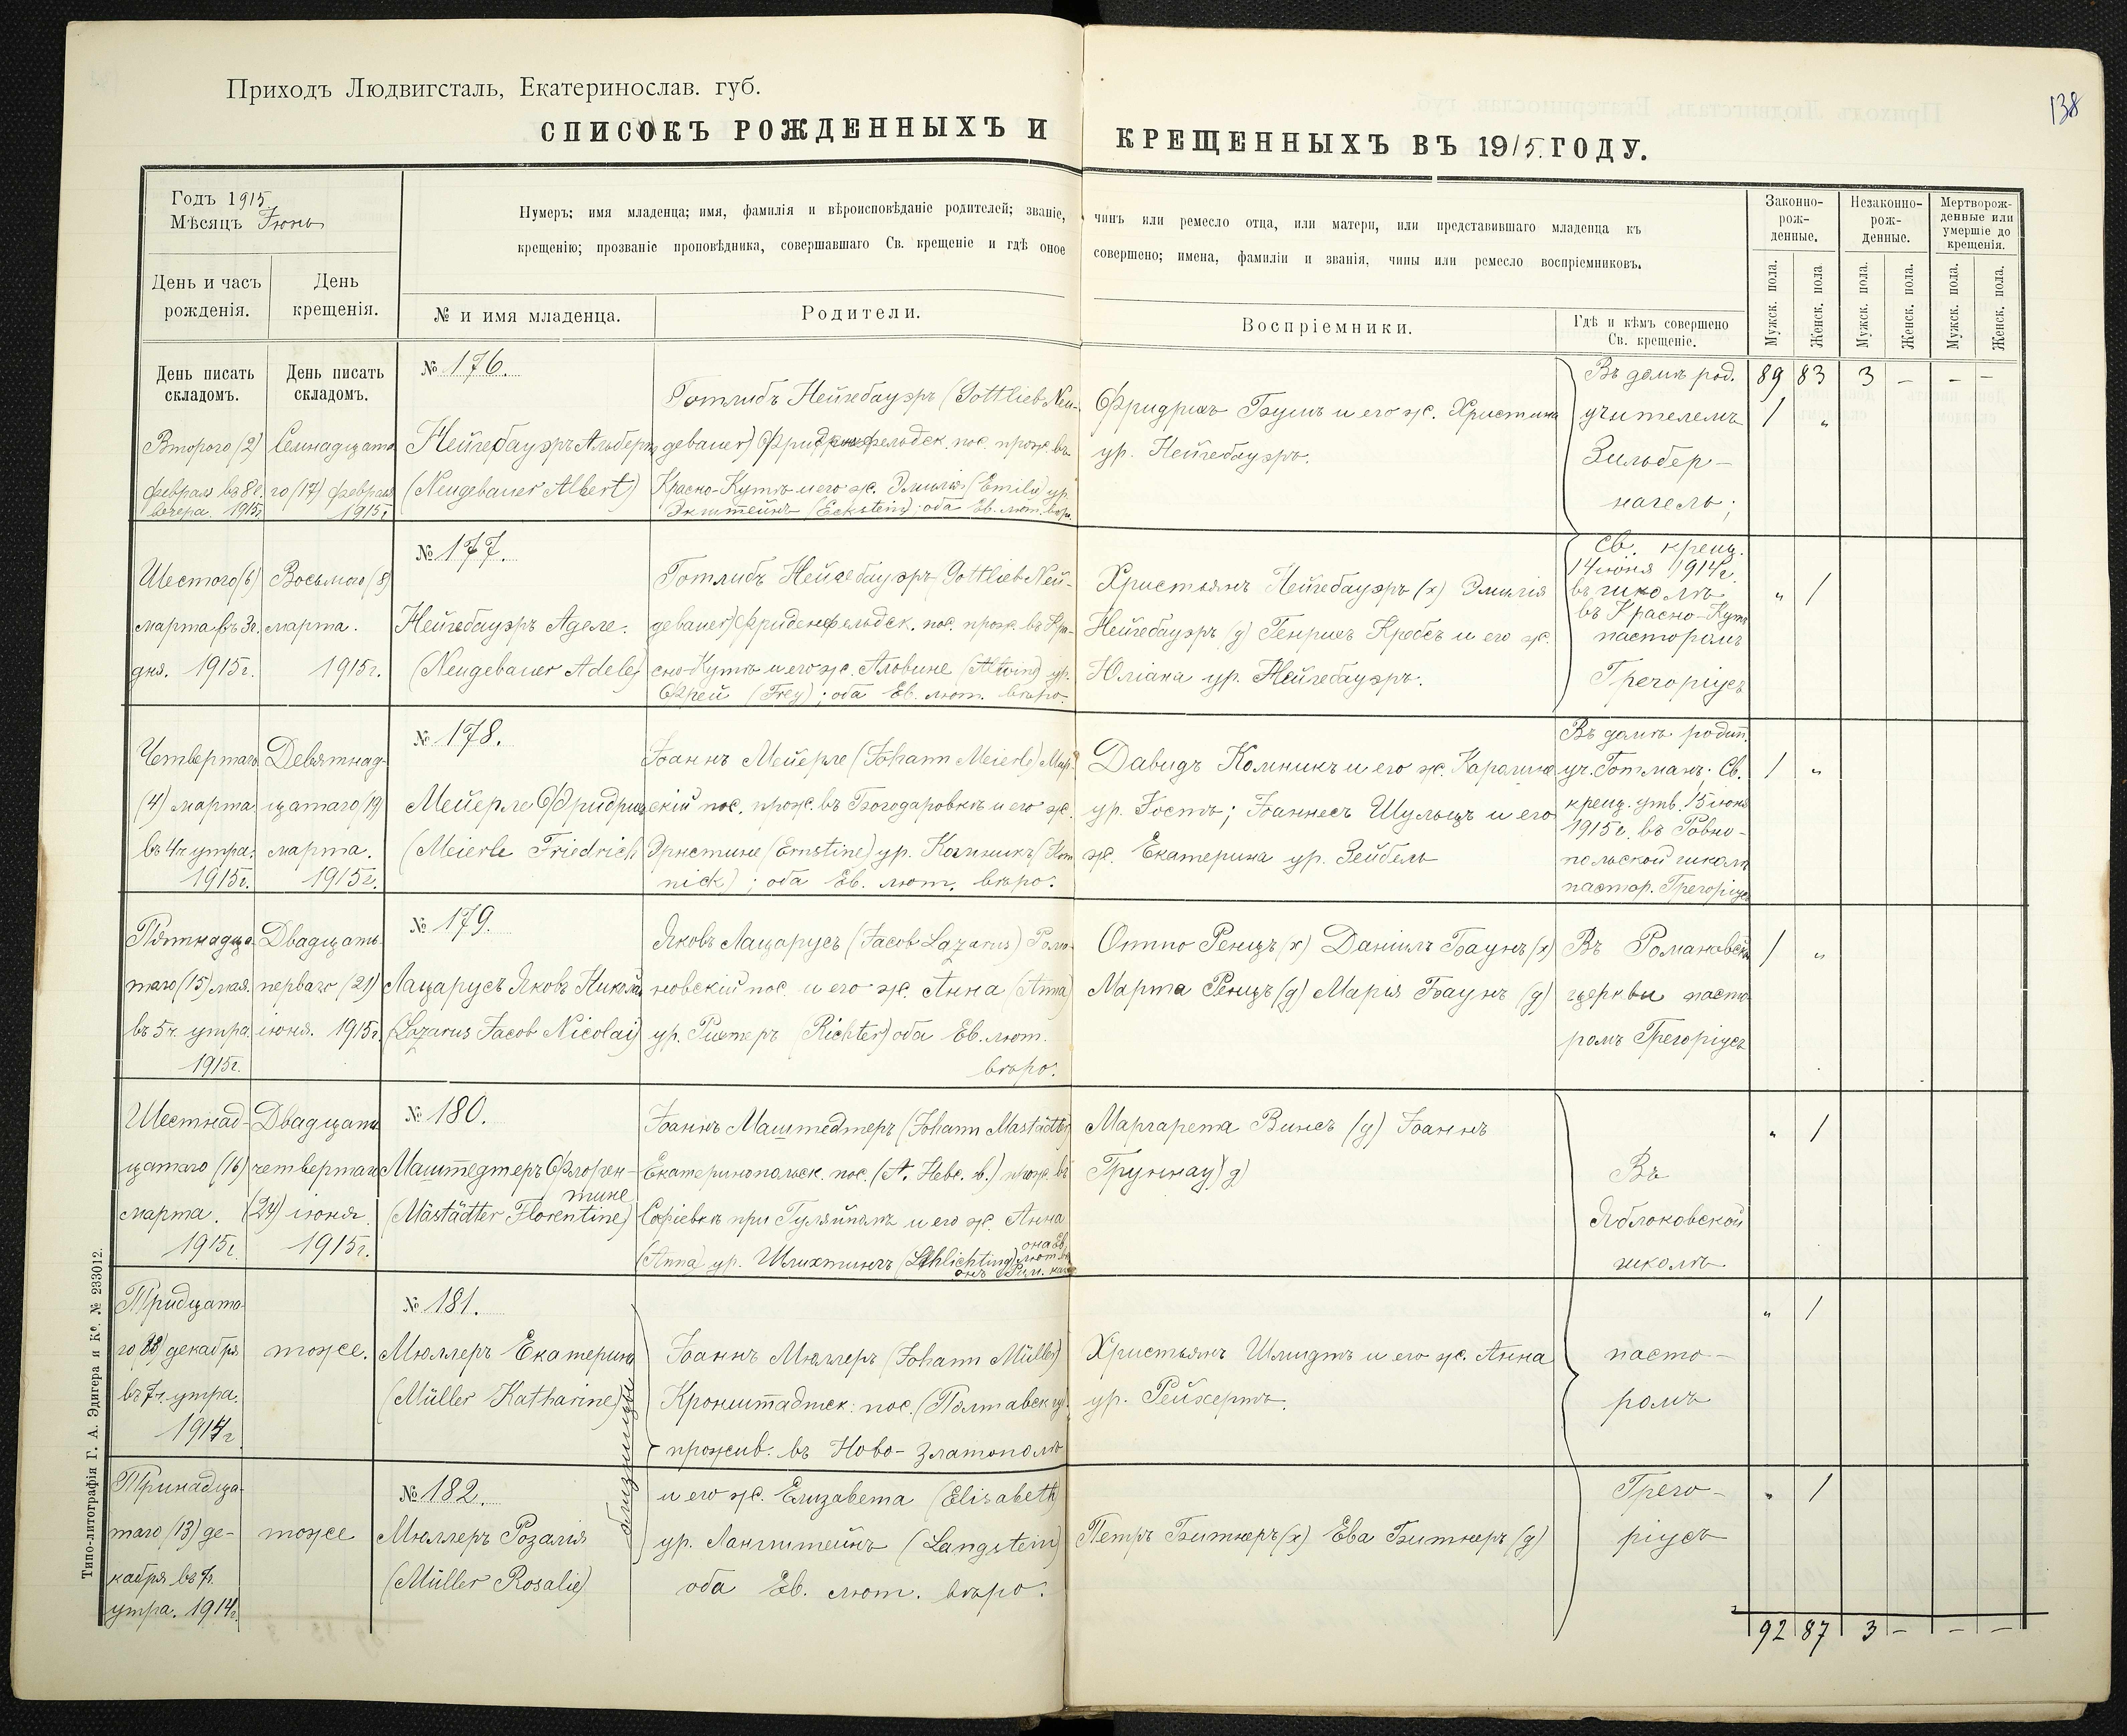 Приходъ Людвигсталь, Екатеринослав. губ.
138
СПИСОКЪ РОЖДЕННЫХЪ И КРЕЩЕННЫХЪ ВЪ 1915 ГОДУ.
Годъ 1915.
Мѣсяцъ Іюнь
День и часъ рожденія.
День крещенія.
Нумеръ; имя младенца; имя, фамилія и вѣроисповѣданіе родителей; званіе, чинъ или ремесло отца, или матери, или представившаго младенца къ
крещенію; прозваніе проповѣдника, совершавшаго Св. крещеніе и гдѣ оное совершено; имена, фамиліи и званія, чины или ремесло воспріемниковъ.
№ и имя младенца.
Родители.
Воспріемники.
Гдѣ и кѣмъ совершено
Св. крещеніе.
Законно-
рож-
денные.
Незаконно-
рож-
денные.
Мертворож-
денные или
умершіе до
крещенія.
Мужск. пола.
Женск. пола
Мужск. пола.
Женск. пола.
Мужск. пола.
Женск. пола.
День писать
складомъ.
День писать
складомъ.
89 83 3 — — —
Второго (2)
февраля въ 8 ч.
вечера. 1915г
Семнадцата
го (17) февраля
1915г
№ 176.
Нейгебауэръ Альбертъ
(Neugebauer Albert)
Готлибъ Нейгебауэръ (Gottlieb Neu-
gebauer) Фриденфельдск. пос. прож. въ
Красно-Кутѣ и его ж. Эмилія (Emilie) ур.
Экштейнъ (Eckstein); оба Ев. лют. вѣро.
Фридрихъ Бушъ и его ж. Христина
ур. Нейгебауэръ.
Въ домѣ род.
учителемъ
Зильбер-
нагель;
1 „
Шестого (6)
марта въ 3ч.
дня. 1915г.
Восьмого (8)
марта.
1915г.
№ 177.
Нейгебауэръ Аделе.
(Neugebauer Adele)
Готлибъ Нейгебауэръ Gottlieb Neu-
gebauer) Фриденфельдск. пос. прож. въ Кра-
сно-Кутѣ и его ж. Алвине (Alwine) ур.
Фрей (Frey); оба Ев. лют. вѣро.
Христьянъ Нейгебауэръ (х) Эмилія
Нейгебауэръ (д) Генрихъ Кробсъ и его ж.
Юліана ур. Нейгебауэръ.
Св. крещ.
14 іюня 1914г.
въ школѣ
въ Красно-Кутѣ
пасторомъ
Грегоріусъ
„ 1
Четвертаго
(4) марта
въ 4ч утра.
1915г.
Девятнад-
цатаго (19)
марта.
1915г.
№ 178.
Мейерле Фридрихъ
(Meierle Friedrich
Іоаннъ Мейерле (Johann Meierle) Мар.
скій пос. прож. въ Богодаровкѣ и его ж.
Эрнстине (Ernstine) ур. Комникъ (Kom
nick); оба Ев. лют. вѣро.
Давидъ Комникъ и его ж. Каролине
ур. Іостъ; Іоаннесъ Шульцъ и его
ж. Екатерина ур. Зейбель
Въ домѣ родит.
уч. Готманъ. Св.
крещ. утв. 15 іюня
1915г. въ Ровно-
польской школѣ
пастор. Грегоріусъ
1 „
Пятнадца-
таго (15) мая.
въ 5ч. утра
1915г.
Двадцать
перваго (21)
іюня. 1915г.
№ 179.
Лацарусъ Яковъ Николай
(Lazarus Jacob Nicolai)
Яковъ Лацарусъ (Jacob Lazarus) Рома-
новскій пос. и его ж. Анна (Anna)
ур. Рихтеръ (Richter) оба Ев. лют.
вѣро.
Отто Ренцъ (х) Даніилъ Баунъ (х)
Марта Ренцъ (д) Марія Баунъ (д)
Въ Романовской
церкви пасто-
ромъ Грегоріусъ
1 „
Шестнад-
цатаго (16)
марта.
1915г.
Двадцать
четвертаго
(24) іюня.
1915г.
№ 180.
Маштедтеръ Флорен-
тине
(Mastädter Florentine)
Іоаннъ Маштедтеръ (Johann Mastädter)
Екатеринопольск. пос. (А. Невс. в.) прож. въ
Софіевкѣ при Гуляйполѣ и его ж. Анна
(Anna) ур. Шлихтингъ (Schlichting); она Ев. лют.
онъ Рим. кат.
Маргарета Винсъ (д) Іоаннъ
Груннау (д)
Въ
Яблоковской
школѣ
„ 1
Тридцата-
го (30) декабря
въ 7ч. утра.
1914г
тоже.
№ 181.
Мюллеръ Екатерина
(Müller Katharine)
близницы
Іоаннъ Мюллеръ (Johann Müller)
Кронштадтск. пос. (Полтавск. гу.
прожив. въ Ново-Златополѣ
Христьянъ Шмидтъ и его ж. Анна
ур. Рейхертъ.
пасто-
ромъ
„ 1
Тринадца-
таго (13) де-
кабря въ 7ч.
утра. 1914г.
тоже
№ 182.
Мюллеръ Розалія
(Müller Rosalie)
и его ж. Елизавета (Elisabeth)
ур. Лангштейнъ (Langstein)
оба Ев. лют. вѣро.
Петръ Битнеръ (х) Ева Битнеръ (д)
Грего-
ріусъ
„ 1
92 87 3 — — —
Типо-литографія Г. А. Эдигера и Ко. № 233012.